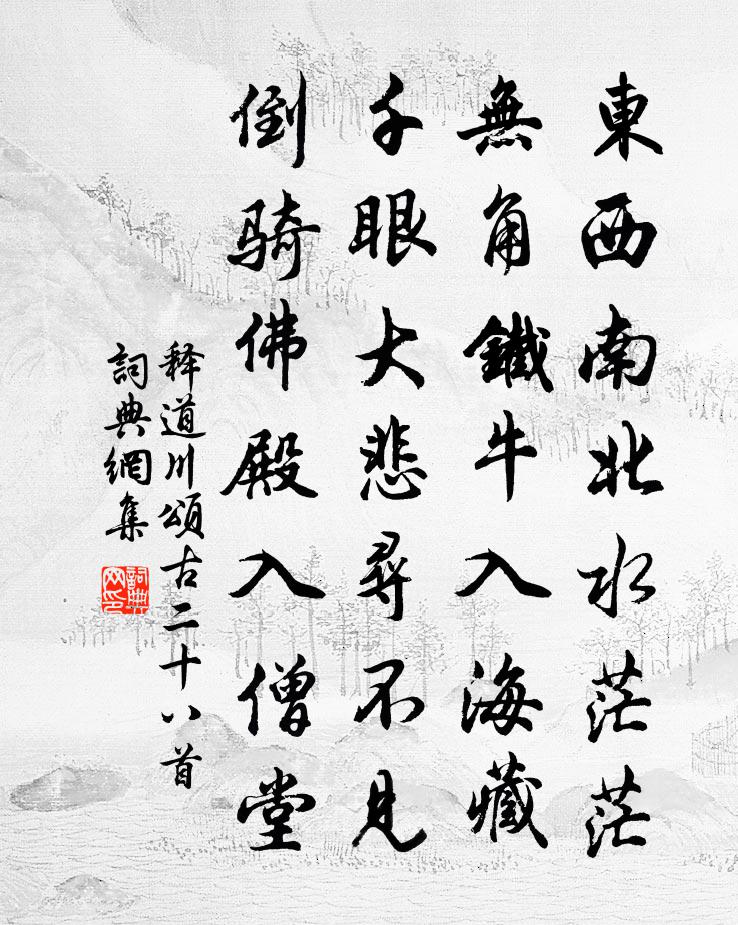 東西南北水茫茫
無角鐵牛入海藏
千眼大悲尋不見
倒騎佛殿入僧堂
釋道川頌古二十八首
詞典網集
詞典
网印